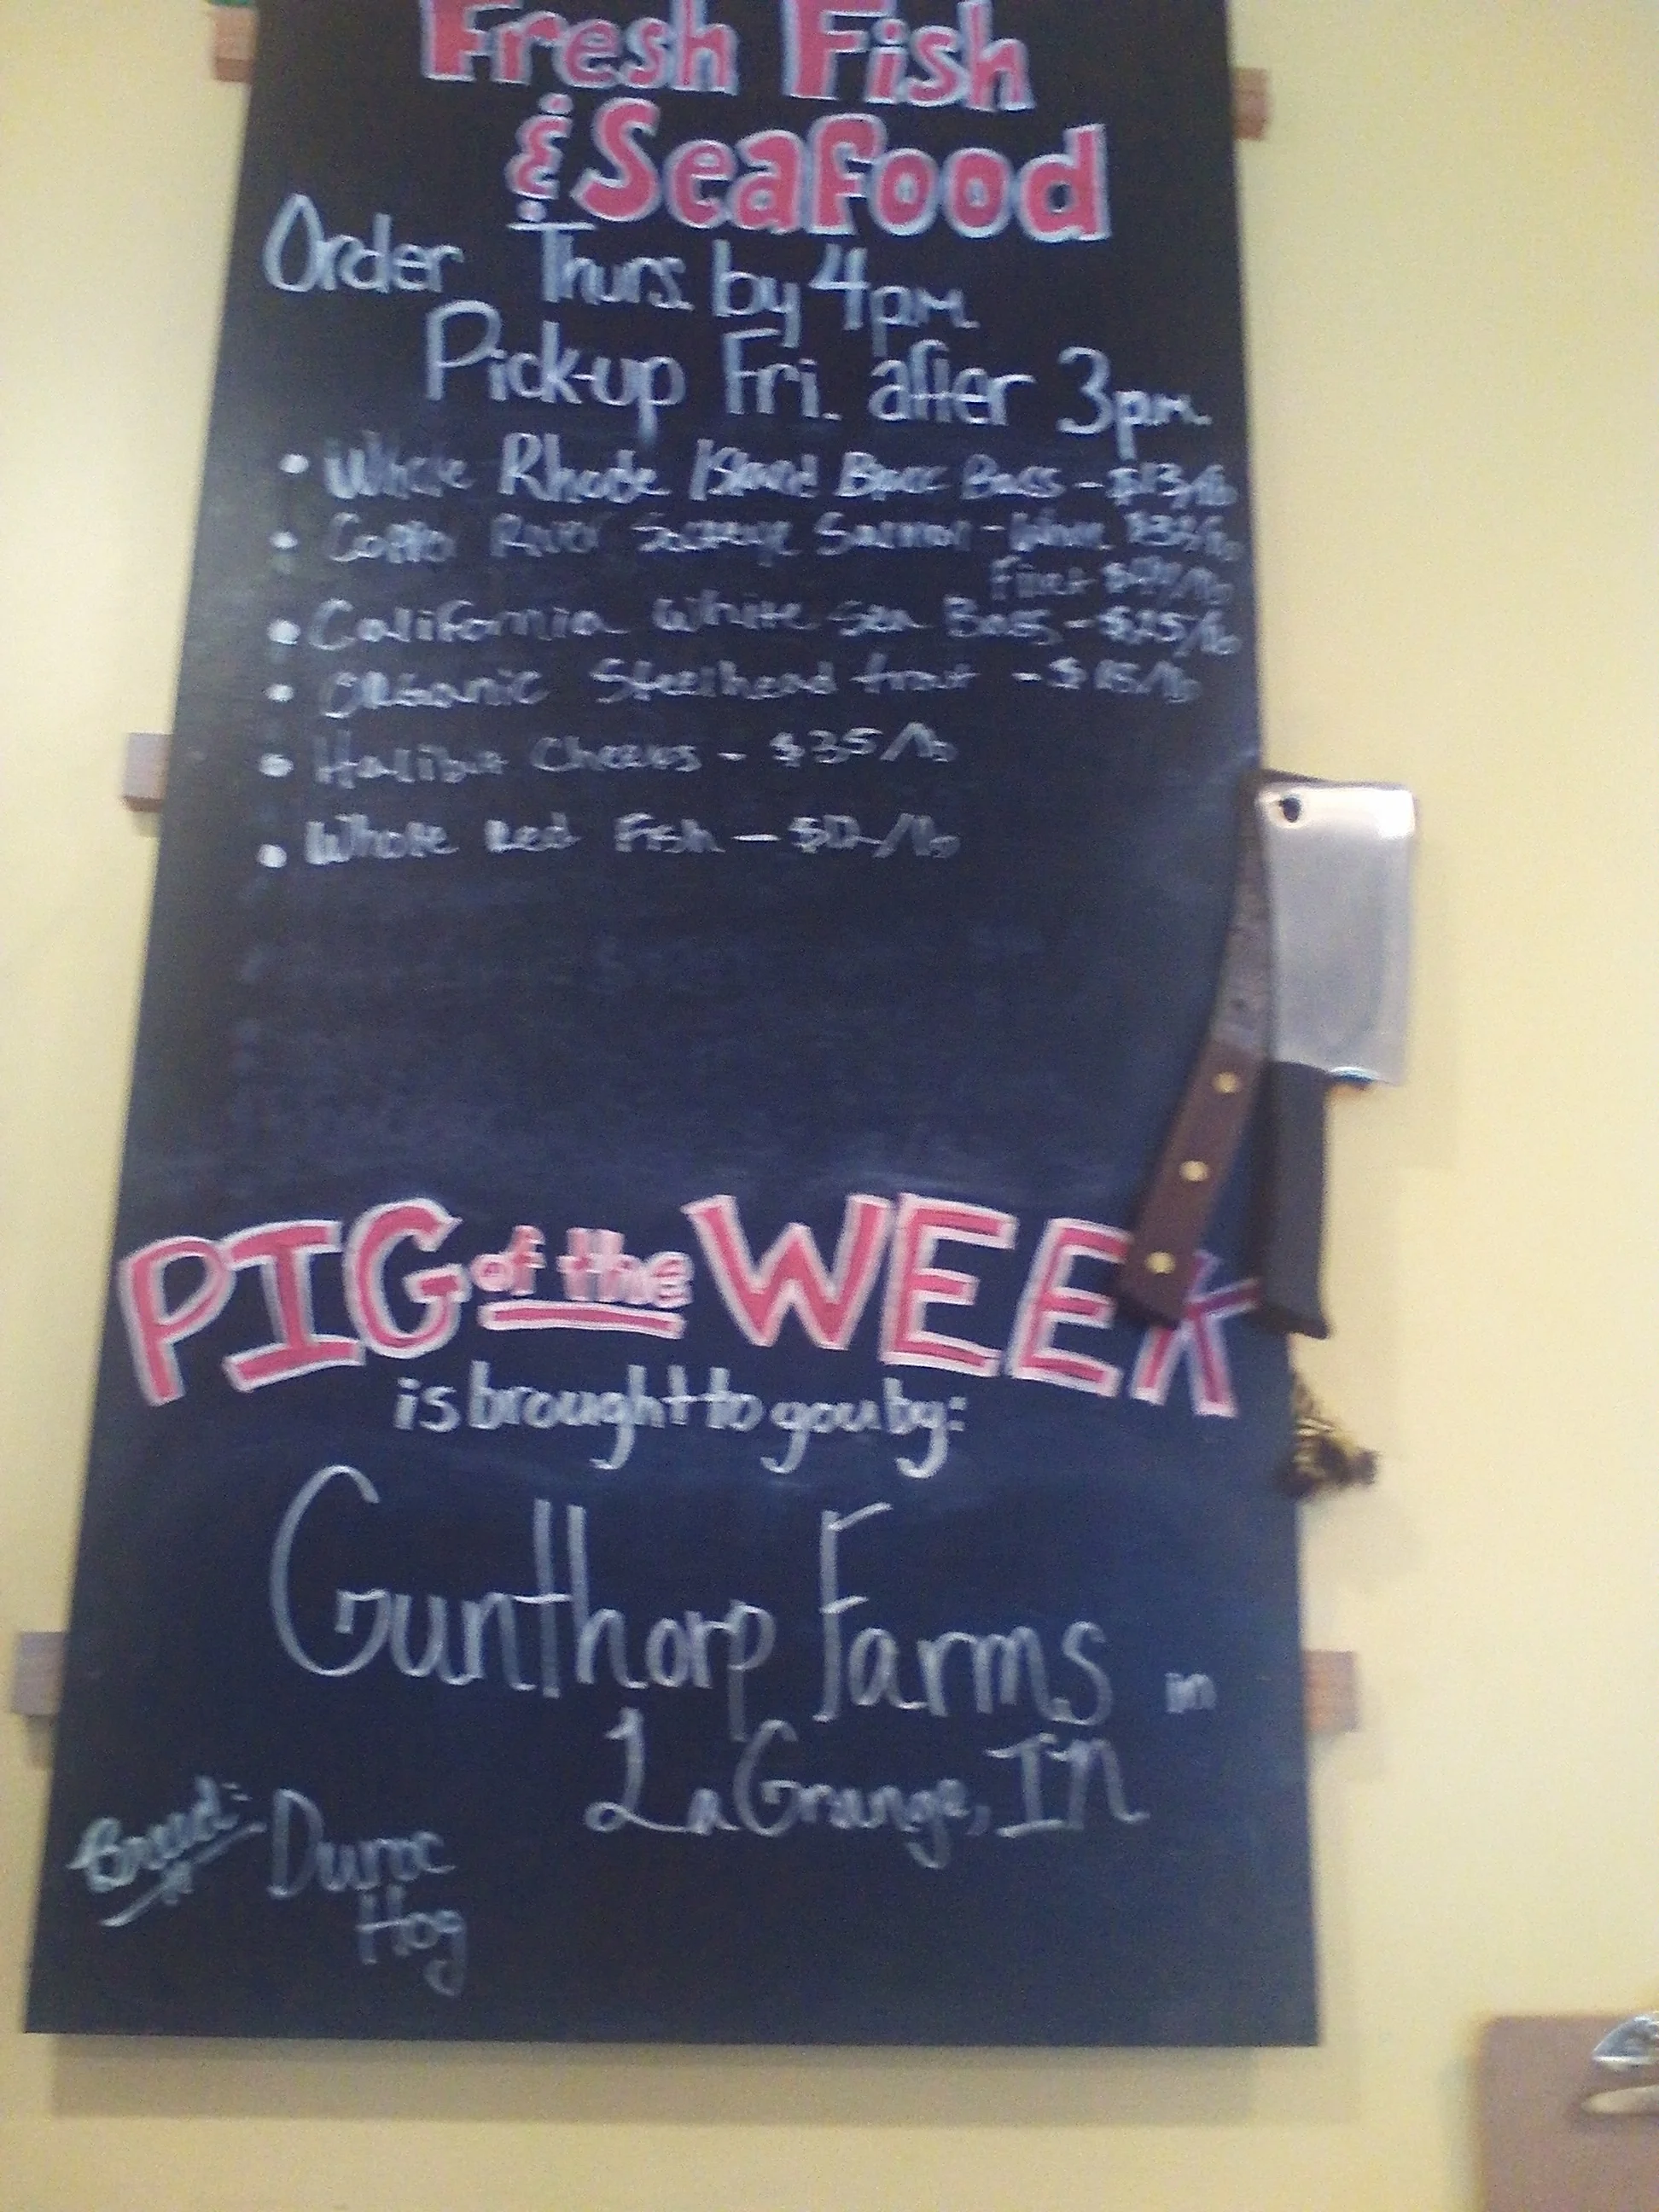 Fresh Fish
& Seafood
Order Thurs. by 4pm
Pick-up Fri. after 3pm.
• Whole Rhode Island Black Bass - $13/lb
• River Sockeye Salmon - Whole
Fillet
• California White Sea Bass - $25/lb
• Organic Steelhead trout - $15/lb
• Halibut Cheeks - $35/lb
• Whole Red Fish - $12/lb
PIG of the WEEK
is brought to you by:
Gunthorp Farms in
LaGrange, IN
Breed: Duroc
Hog